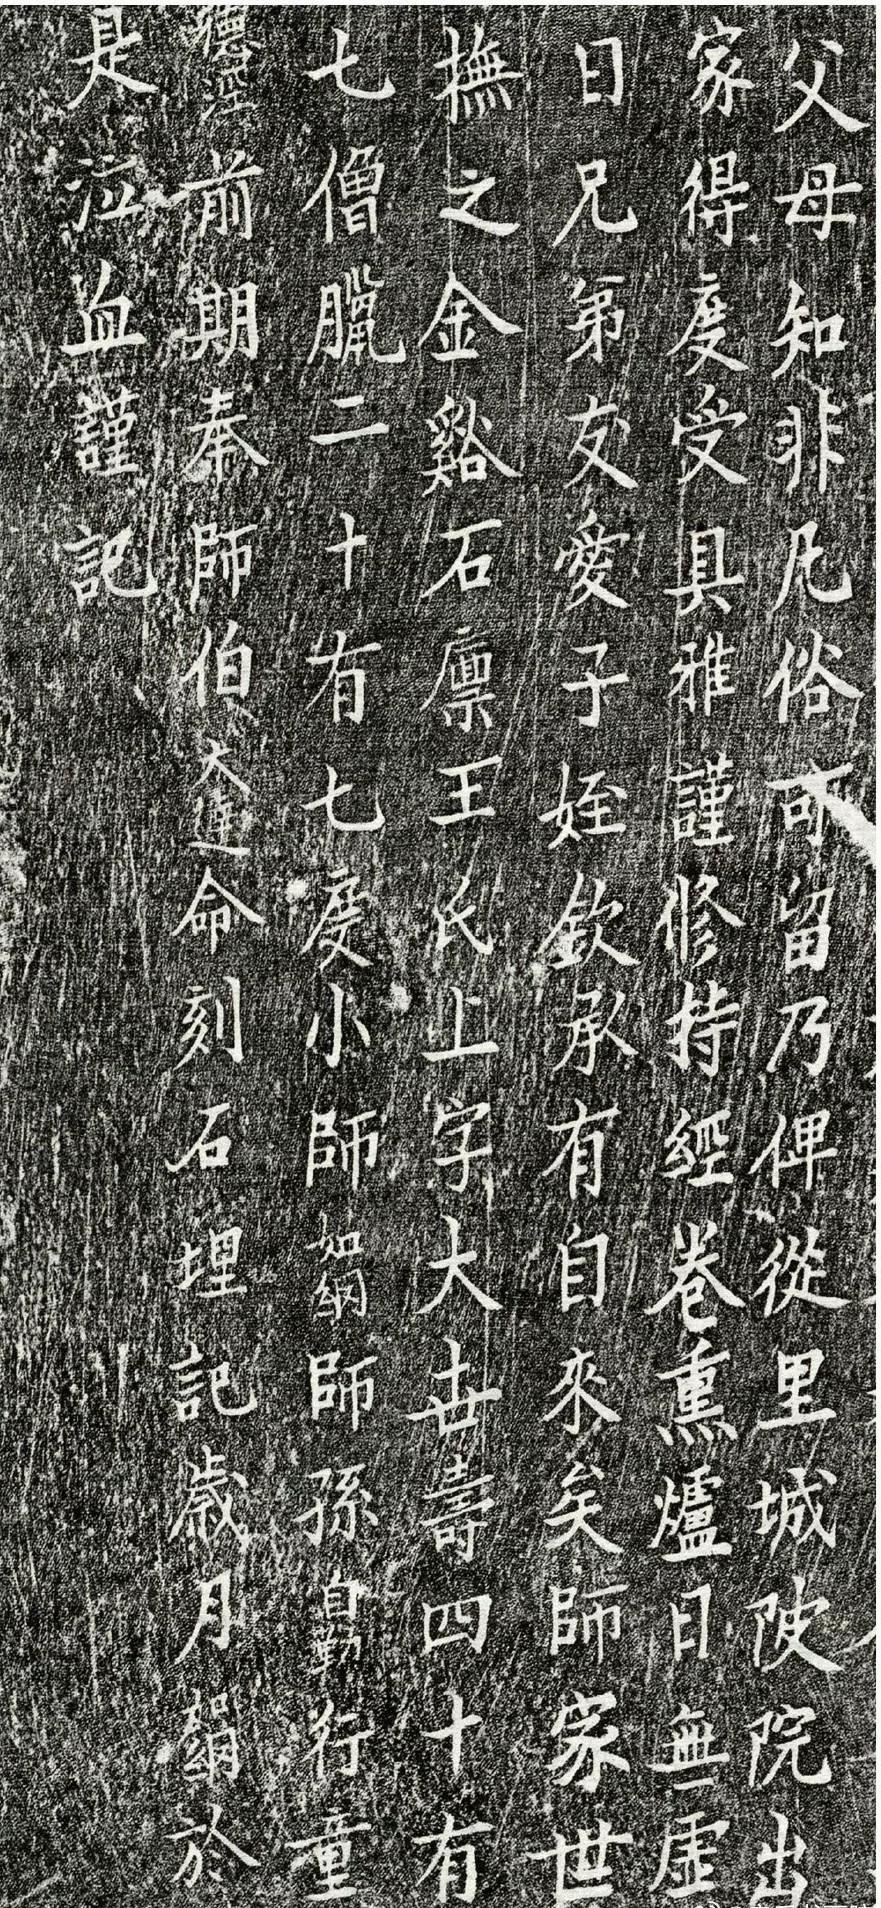 父母知非凡俗可留乃俾從里城陂院出
家得度受具雅謹修持經卷熏爐日無虛
日兄弟友愛子姪欽承有自來矣師家世
撫之金谿石廪王氏上字大世壽四十有
七僧臘二十有七度小師如綱師孫自勤行童
德洤前期奉師伯大蓮命刻石埋記歲月如綱於
是泣血謹記